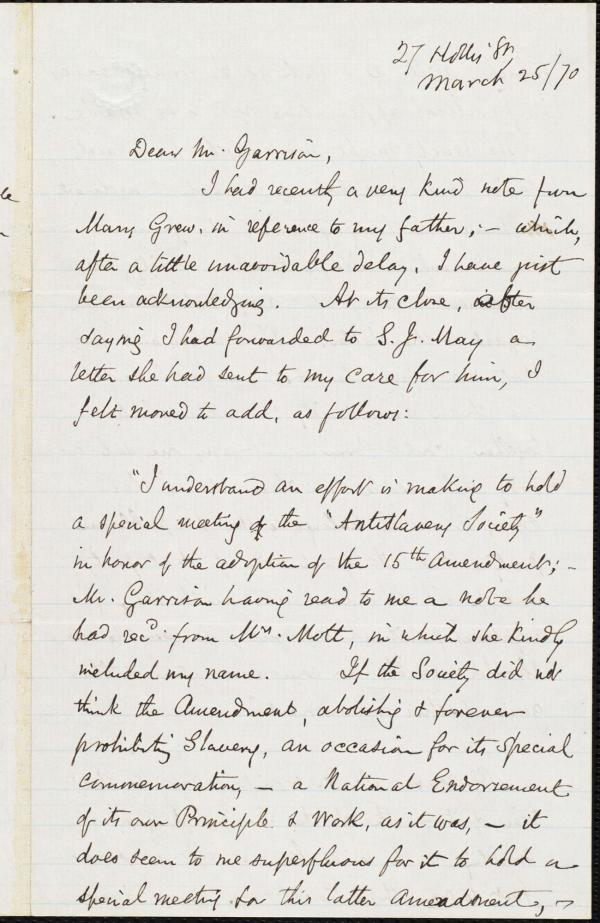 27 Hollis St
March 25/70
Dear Mr. Garrison,
I had recently a very kind note from
Mary Grew, in reference to my father; – which,
after a little unavoidable delay, I have just
been acknowledging. At its close, after
saying I had forwarded to S. J. May a
letter she had sent to my care for him, I
felt moved to add, as follows:
"I understand an effort is making to hold
a special meeting of the "Antislavery Society"
in honor of the adoption of the 15th Amendment; –
Mr. Garrison having read to me a note he
had recd. from Mrs. Mott, in which she kindly
included my name. If the Society did not
think the Amendment, abolishing & forever
prohibiting Slavery, an occasion for its special
commemoration, – a National Endorsement
of its own Principle & Work, as it was, – it
does seem to me superfluous for it to hold a
special meeting for this latter Amendment, –